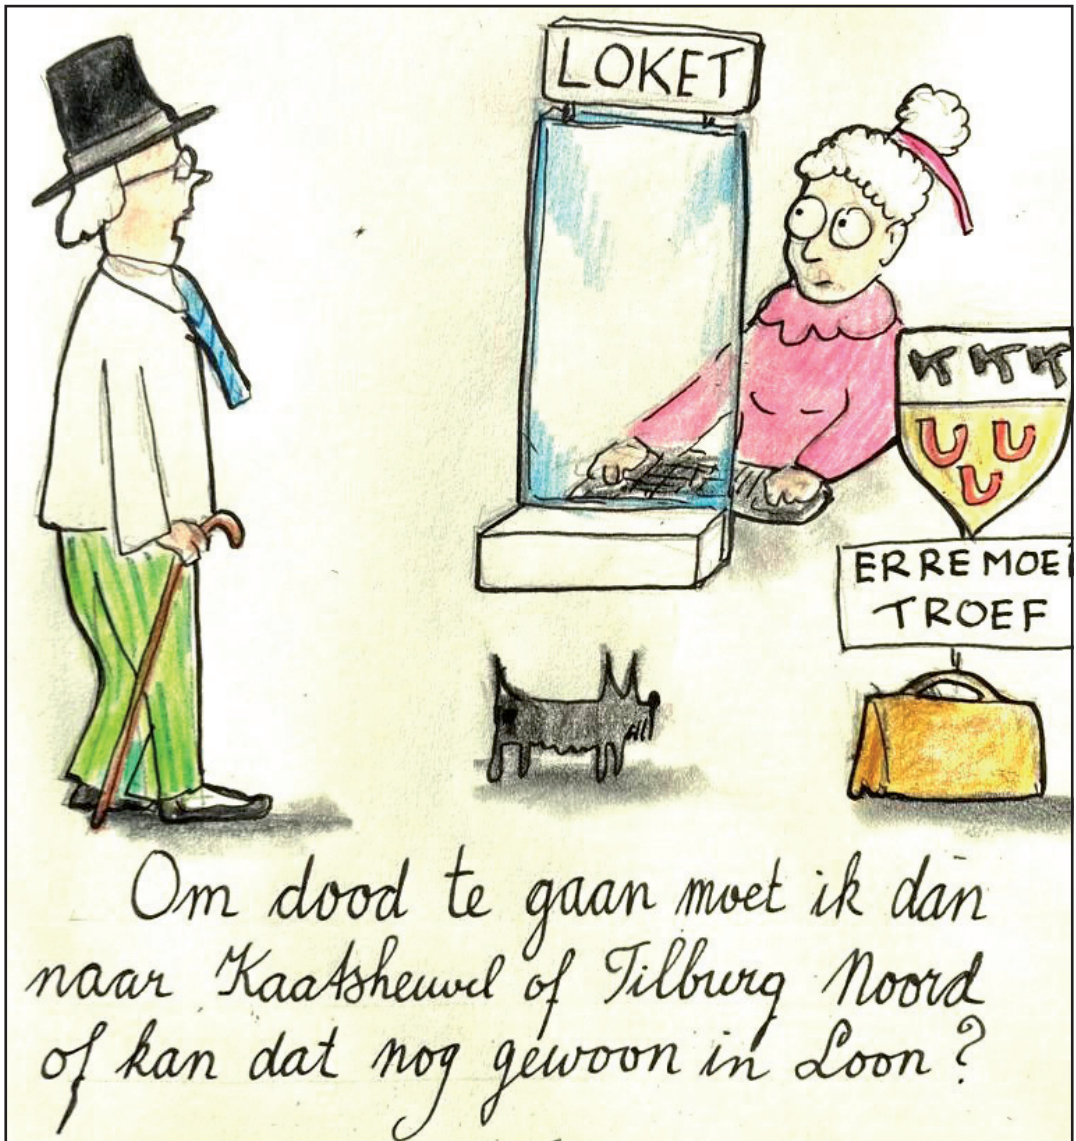 LOKET
ERREMOEI
TROEF
Om dood te gaan moet ik dan
naar Kaatsheuvel of Tilburg Noord
of kan dat nog gewoon in Loon?